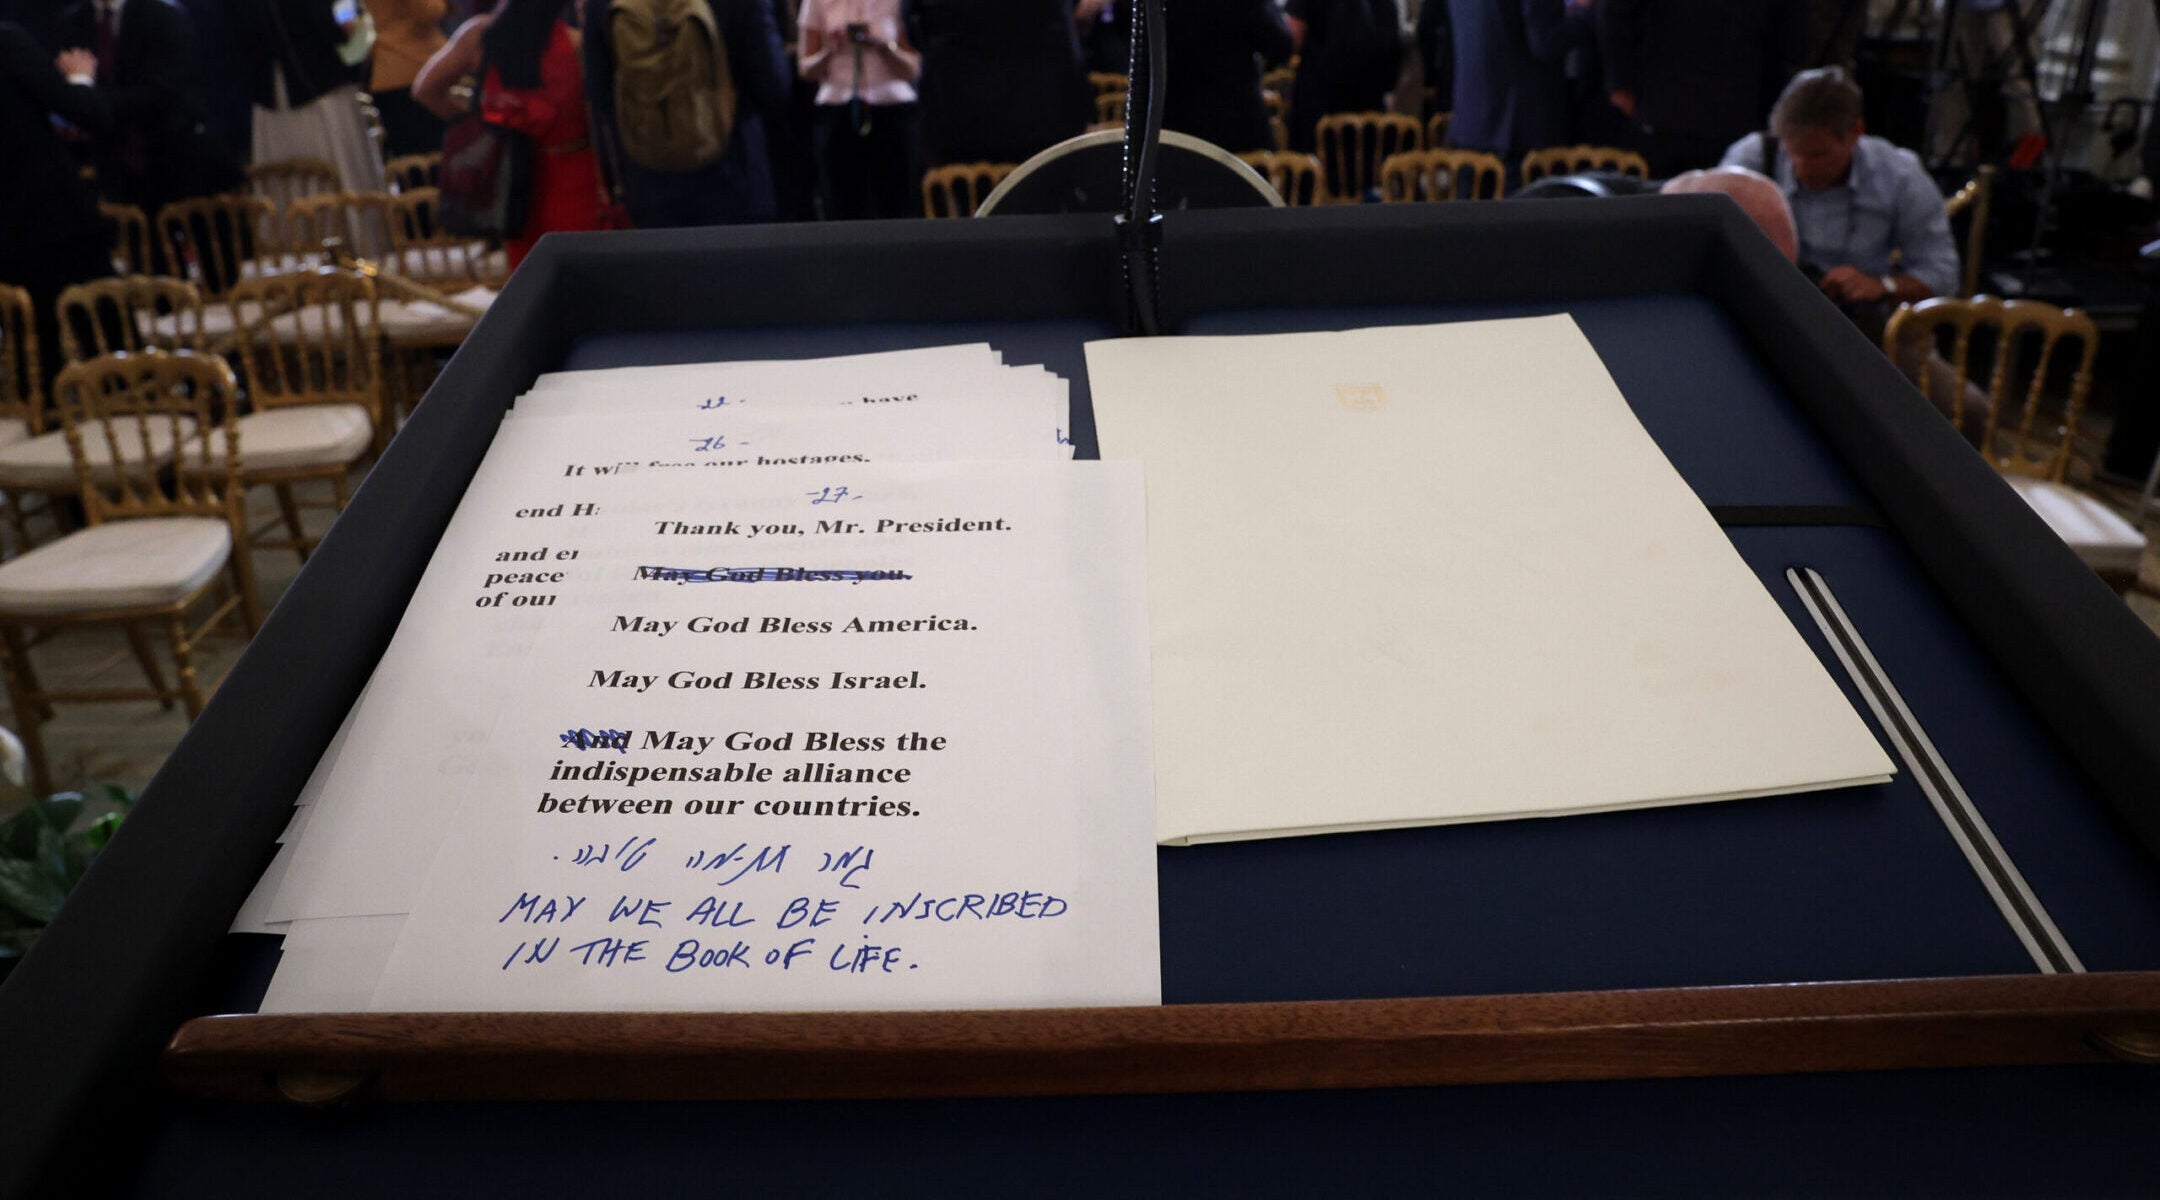 22-
have
26-
It will free our hostages.
end H
and en
peace
of our
-27-
Thank you, Mr. President.
May God Bless you.
May God Bless America.
May God Bless Israel.
And May God Bless the
indispensable alliance
between our countries.
גמר חתימה טובה.
MAY WE ALL BE INSCRIBED
IN THE BOOK OF LIFE.